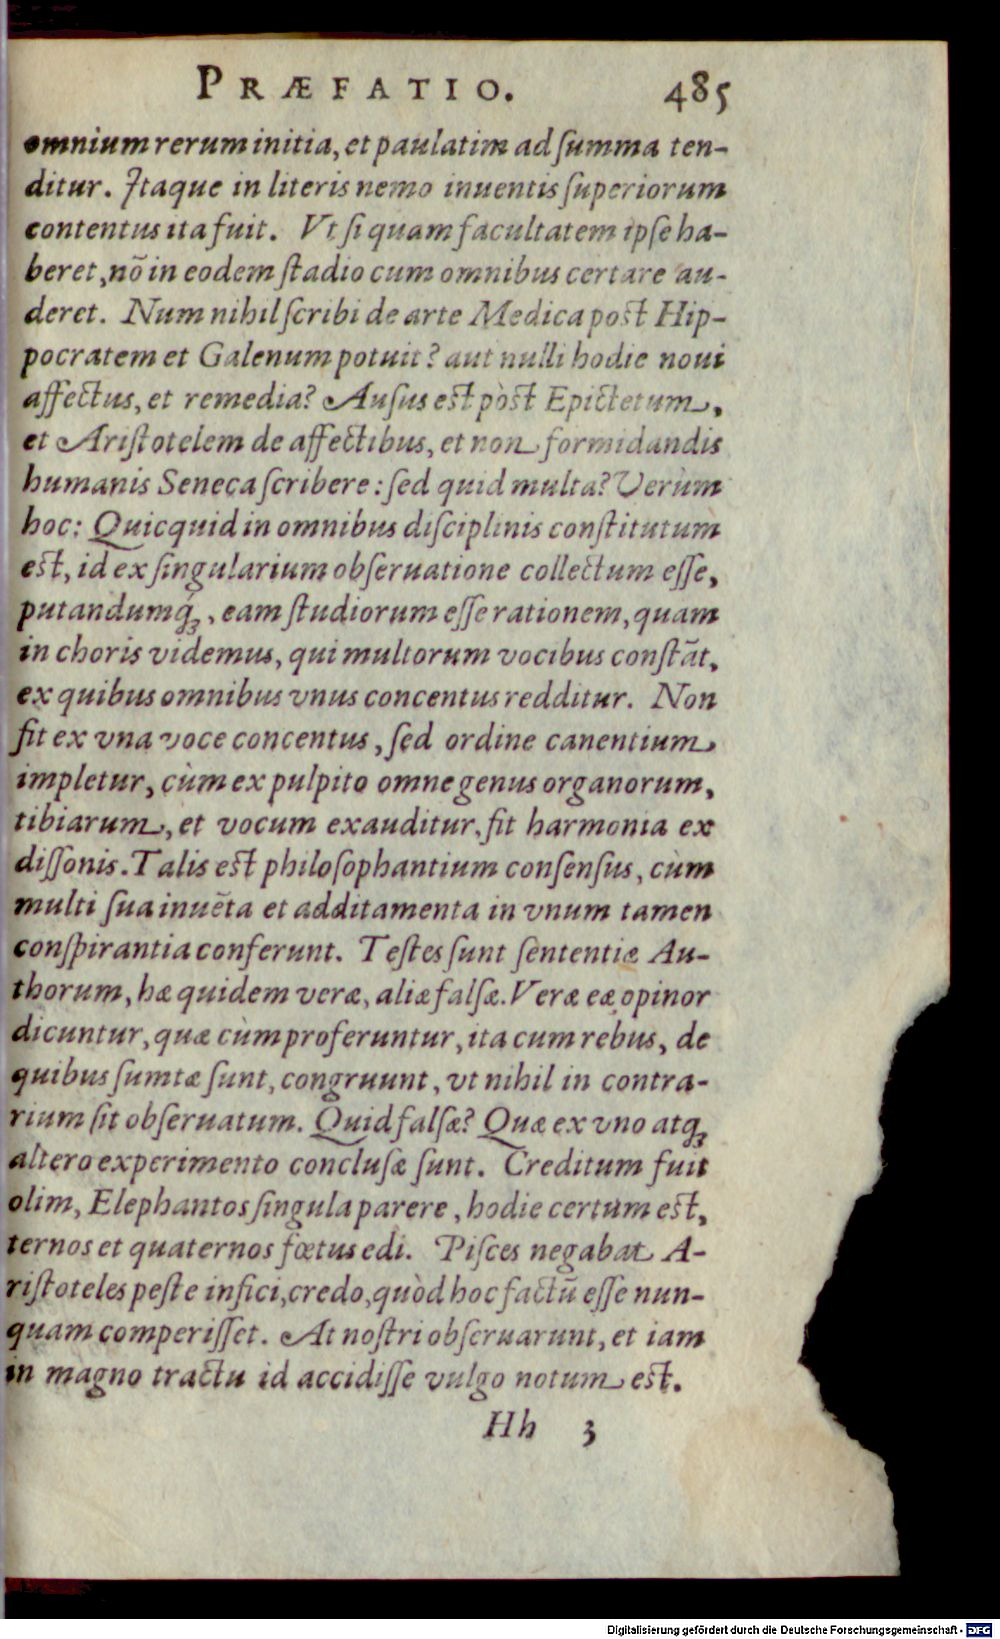 PRÆFATIO. 485
omnium rerum initia, et paulatim ad ſumma ten-
ditur. Itaque in literis nemo inuentis ſuperiorum
contentus ita fuit. Vt ſi quam facultatem ipſe ha-
beret, nō in eodem ſtadio cum omnibus certare au-
deret. Num nihil ſcribi de arte Medica poſt Hip-
pocratem et Galenum potuit? aut nulli hodie noui
affectus, et remedia? Auſus eſt pòſt Epictetum,
et Ariſtotelem de affectibus, et non formidandis
humanis Seneca ſcribere: ſed quid multa? Verùm
hoc: Quicquid in omnibus diſciplinis conſtitutum
eſt, id ex ſingularium obſeruatione collectum eſſe,
putandumq́ꝫ, eam ſtudiorum eſſe rationem, quam
in choris videmus, qui multorum vocibus conſtāt,
ex quibus omnibus vnus concentus redditur. Non
fit ex vna voce concentus, ſed ordine canentium
impletur, cùm ex pulpito omne genus organorum,
tibiarum, et vocum exauditur, fit harmonia ex
diſſonis. Talis eſt philoſophantium conſenſus, cùm
multi ſua inuēta et additamenta in vnum tamen
conſpirantia conferunt. Teſtes ſunt ſententiæ Au-
thorum, hæ quidem veræ, aliæ falſæ. Veræ eæ opinor
dicuntur, quæ cùm proferuntur, ita cum rebus, de
quibus ſumtæ ſunt, congruunt, vt nihil in contra-
rium ſit obſeruatum. Quid falſæ? Quæ ex vno atqꝫ
altero experimento concluſæ ſunt. Creditum fuit
olim, Elephantos ſingula parere, hodie certum eſt,
ternos et quaternos fœtus edi. Piſces negabat A-
riſtoteles peſte infici, credo, quòd hoc factū eſſe nun-
quam comperiſſet. At noſtri obſeruarunt, et iam
in magno tractu id accidiſſe vulgo notum eſt.
Hh 3
Digitalisierung gefördert durch die Deutsche Forschungsgemeinschaft - DFG